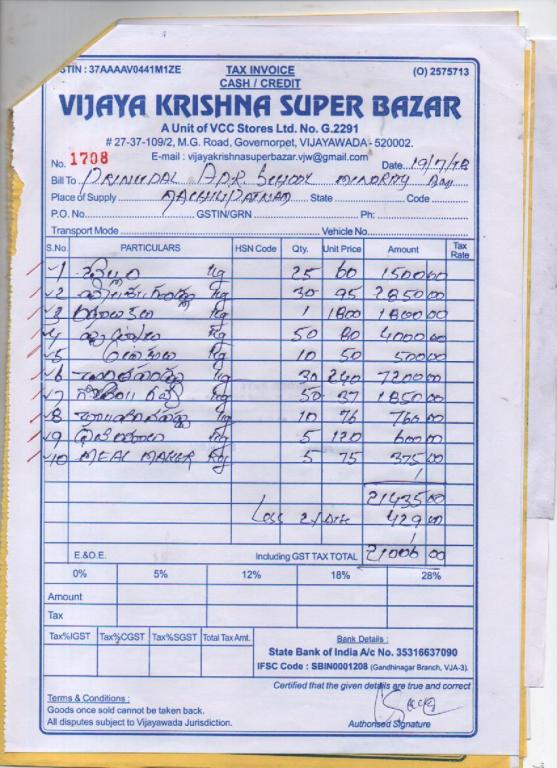 STIN : 37AAAAV0441M1ZE TAX INVOICE (O) 2575713
CASH / CREDIT
VIJAYA KRISHNA SUPER BAZAR
A Unit of VCC Stores Ltd. No. G.2291
# 27-37-109/2, M.G. Road, Governorpet, VIJAYAWADA - 520002.
E-mail : vijayakrishnasuperbazar.vjw@gmail.com
No. 1708 Date 19/7/18
Bill To PRINCIPAL A.P.R. SCHOOL MINORITY Boy
Place of Supply MACHILIPATNAM State Code
P.O. No. GSTIN/GRN Ph:
Transport Mode Vehicle No.
S.No. PARTICULARS HSN Code Qty. Unit Price Amount Tax Rate
1 Kg 25 60 1500 00
2 Kg 30 95 2850 00
3 Kg 1 1800 1800 00
4 Kg 50 80 4000 00
5 Kg 10 50 500 00
6 Kg 30 240 7200 00
7 Kg 50 37 1850 00
8 Kg 10 76 760 00
9 Kg 5 120 600 00
10 MEAL MAKER Kg 5 75 375 00
21435 00
Less 2% 429 00
E.&O.E. Including GST TAX TOTAL 21006 00
0% 5% 12% 18% 28%
Amount
Tax
Tax%IGST Tax%CGST Tax%SGST Total Tax Amt.
Bank Details :
State Bank of India A/c No. 35316637090
IFSC Code : SBIN0001208 (Gandhinagar Branch, VJA-3).
Certified that the given details are true and correct
Terms & Conditions :
Goods once sold cannot be taken back.
All disputes subject to Vijayawada Jurisdiction.
Authorised Signature